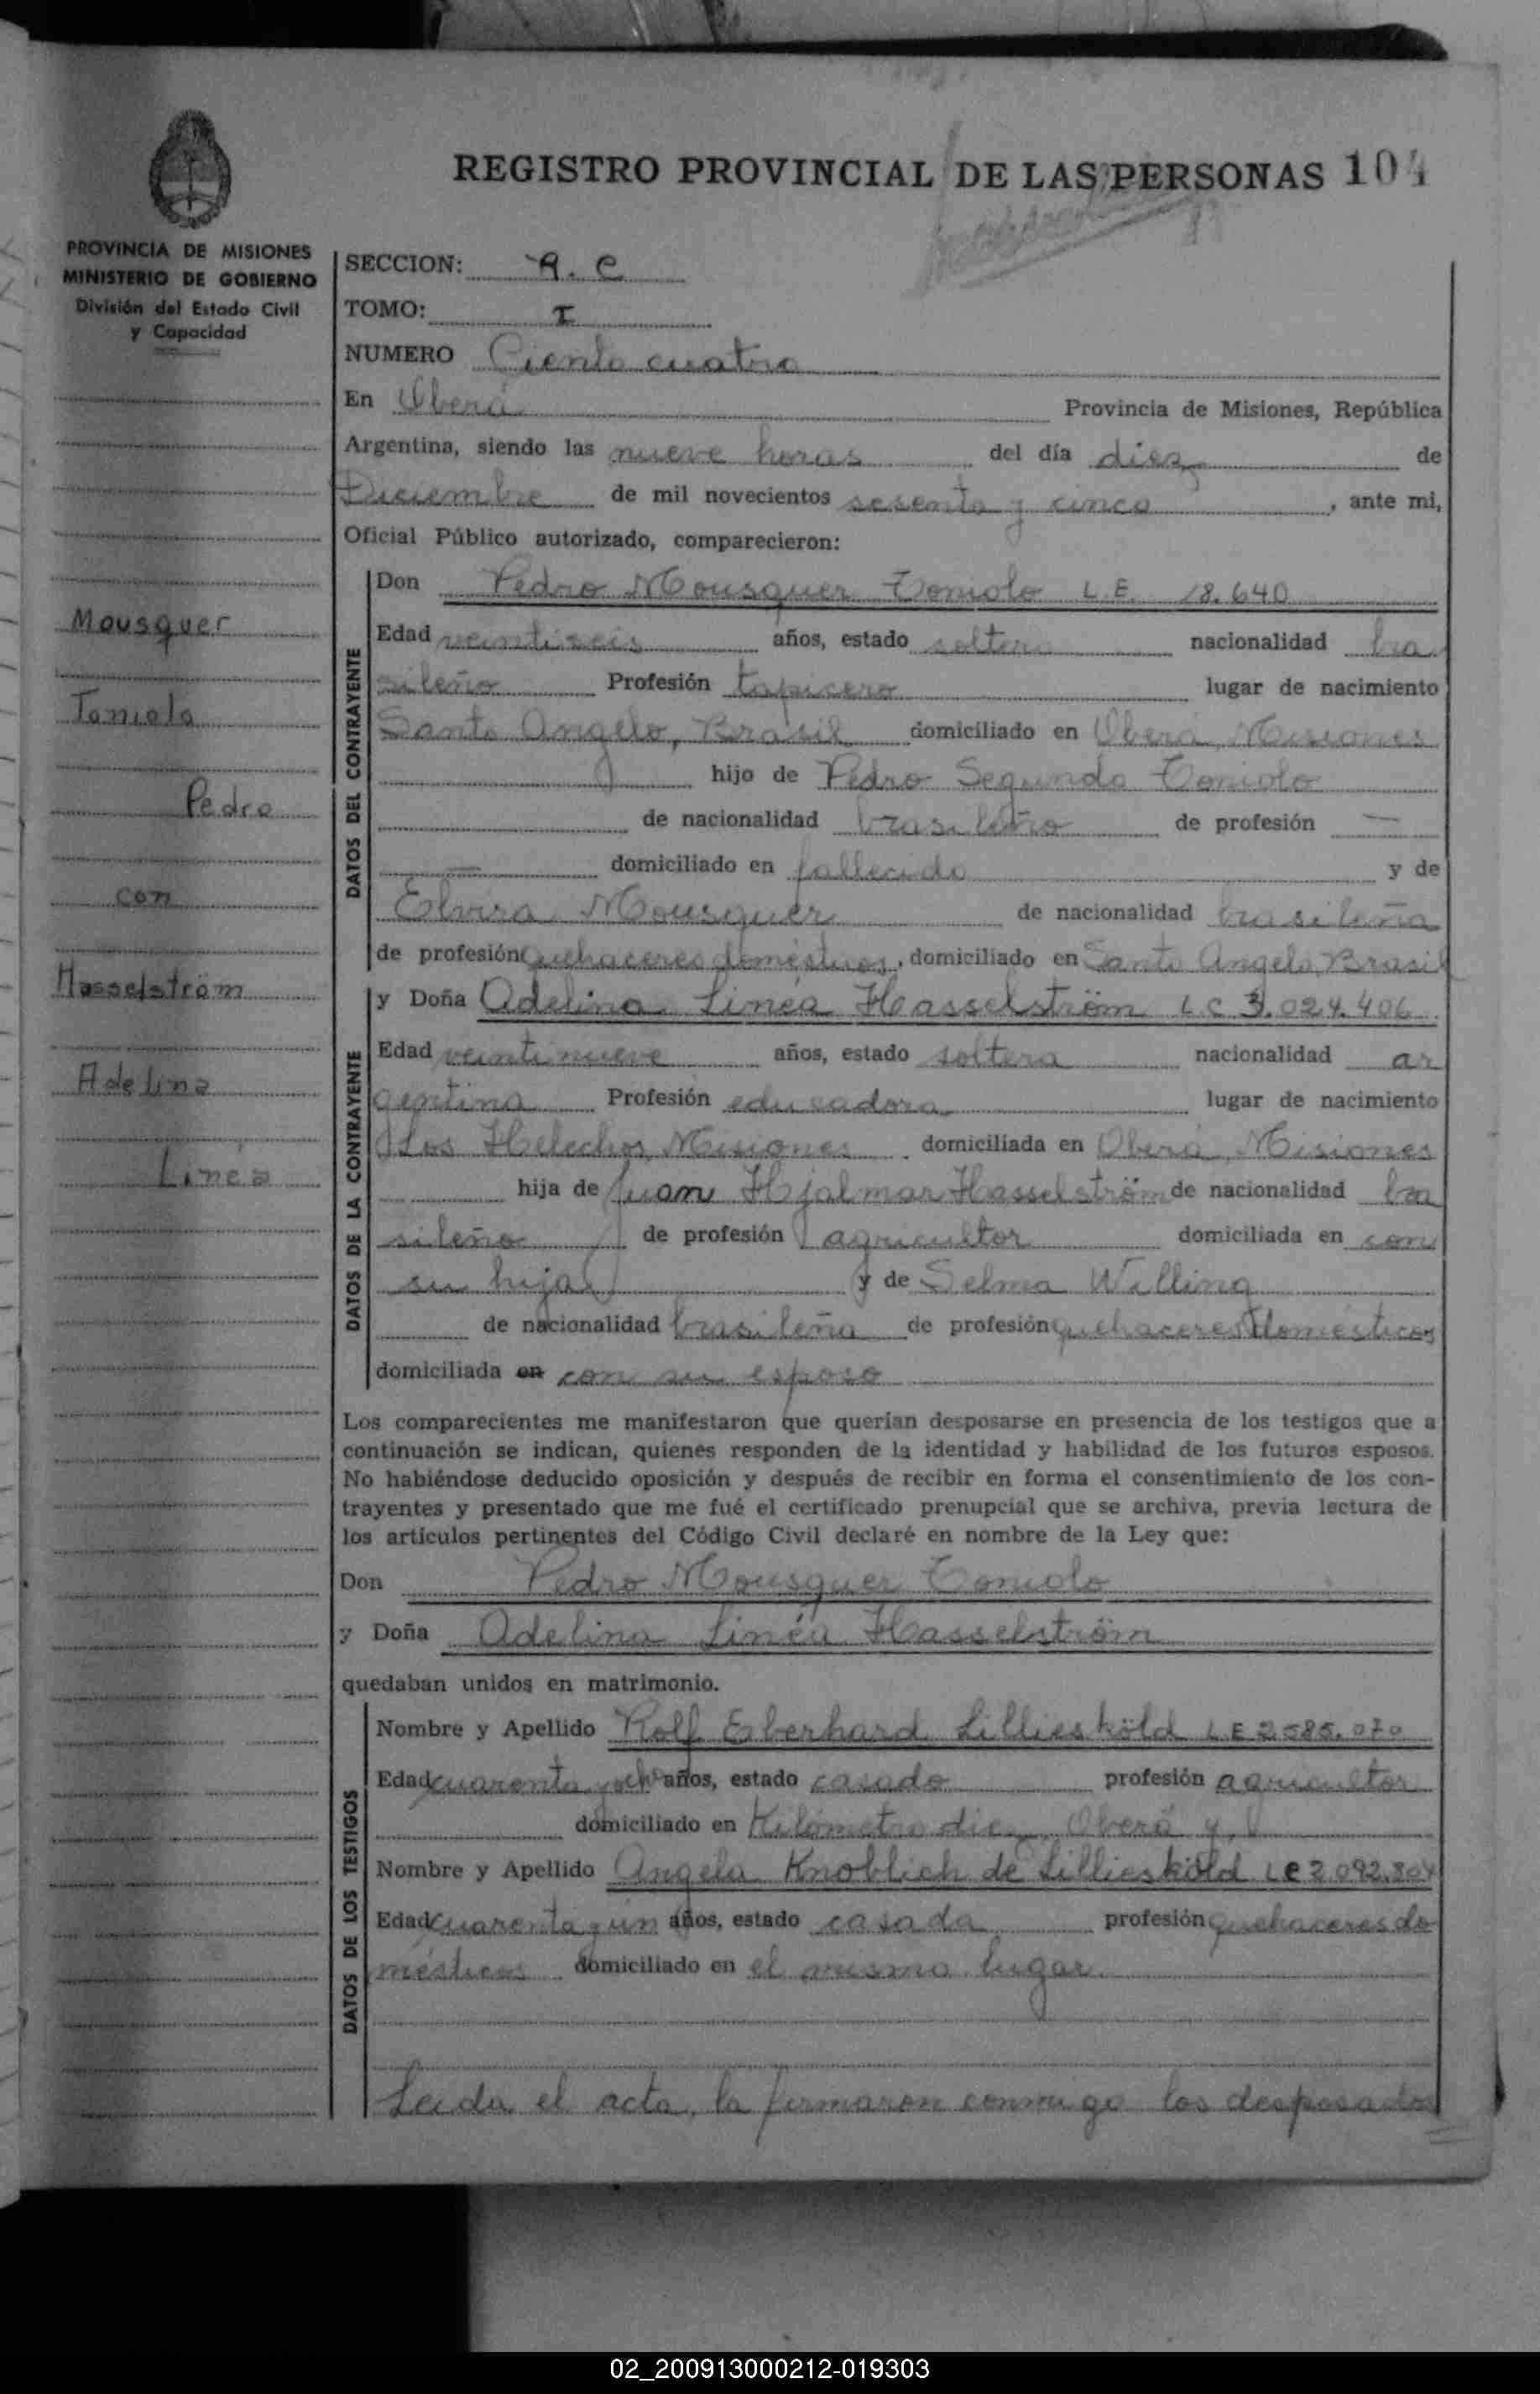 REGISTRO PROVINCIAL DE LAS PERSONAS 104
PROVINCIA DE MISIONES
MINISTERIO DE GOBIERNO
División del Estado Civil
y Capacidad
SECCION: A. C
TOMO: I
NUMERO Ciento cuatro
En Oberá Provincia de Misiones, República
Argentina, siendo las nueve horas del día diez de
Diciembre de mil novecientos sesenta y cinco, ante mi,
Oficial Público autorizado, comparecieron:
Mousquer
Toniolo
Pedro
con
Hasselström
Adelina
Linéa
DATOS DEL CONTRAYENTE
Don Pedro Mousquer Toniolo L.E. 18.640
Edad veintiseis años, estado soltero nacionalidad bra
sileño Profesión tapicero lugar de nacimiento
Santo Angelo, Brasil domiciliado en Oberá, Misiones
hijo de Pedro Segundo Toniolo
de nacionalidad brasileño de profesión —
— domiciliado en fallecido y de
Elvira Mousquer de nacionalidad brasileña
de profesión quehaceres domésticos, domiciliado en Santo Angelo, Brasil
DATOS DE LA CONTRAYENTE
y Doña Adelina Linéa Hasselström L.C 3.024.406
Edad veintinueve años, estado soltera nacionalidad ar
gentina Profesión educadora lugar de nacimiento
Los Helechos, Misiones domiciliada en Oberá, Misiones
hija de Juan Hjalmar Hasselström de nacionalidad bra
sileño de profesión agricultor domiciliada en con
su hija y de Selma Willing
de nacionalidad brasileña de profesión quehaceres domésticos
domiciliada en con su esposo
Los comparecientes me manifestaron que querían desposarse en presencia de los testigos que a
continuación se indican, quienes responden de la identidad y habilidad de los futuros esposos.
No habiéndose deducido oposición y después de recibir en forma el consentimiento de los con-
trayentes y presentado que me fué el certificado prenupcial que se archiva, previa lectura de
los artículos pertinentes del Código Civil declaré en nombre de la Ley que:
Don Pedro Mousquer Toniolo
y Doña Adelina Linéa Hasselström
quedaban unidos en matrimonio.
DATOS DE LOS TESTIGOS
Nombre y Apellido Rolf Eberhard Lilliesköld L.E 2.585.070
Edad cuarenta y ocho años, estado casado profesión agricultor
domiciliado en Kilómetro diez, Oberá y
Nombre y Apellido Angela Knoblich de Lilliesköld LC 2.092.804
Edad cuarenta y un años, estado casada profesión quehaceres do
mésticos domiciliado en el mismo lugar.
Leida el acta, la firmaron conmigo los desposados
02_200913000212-019303